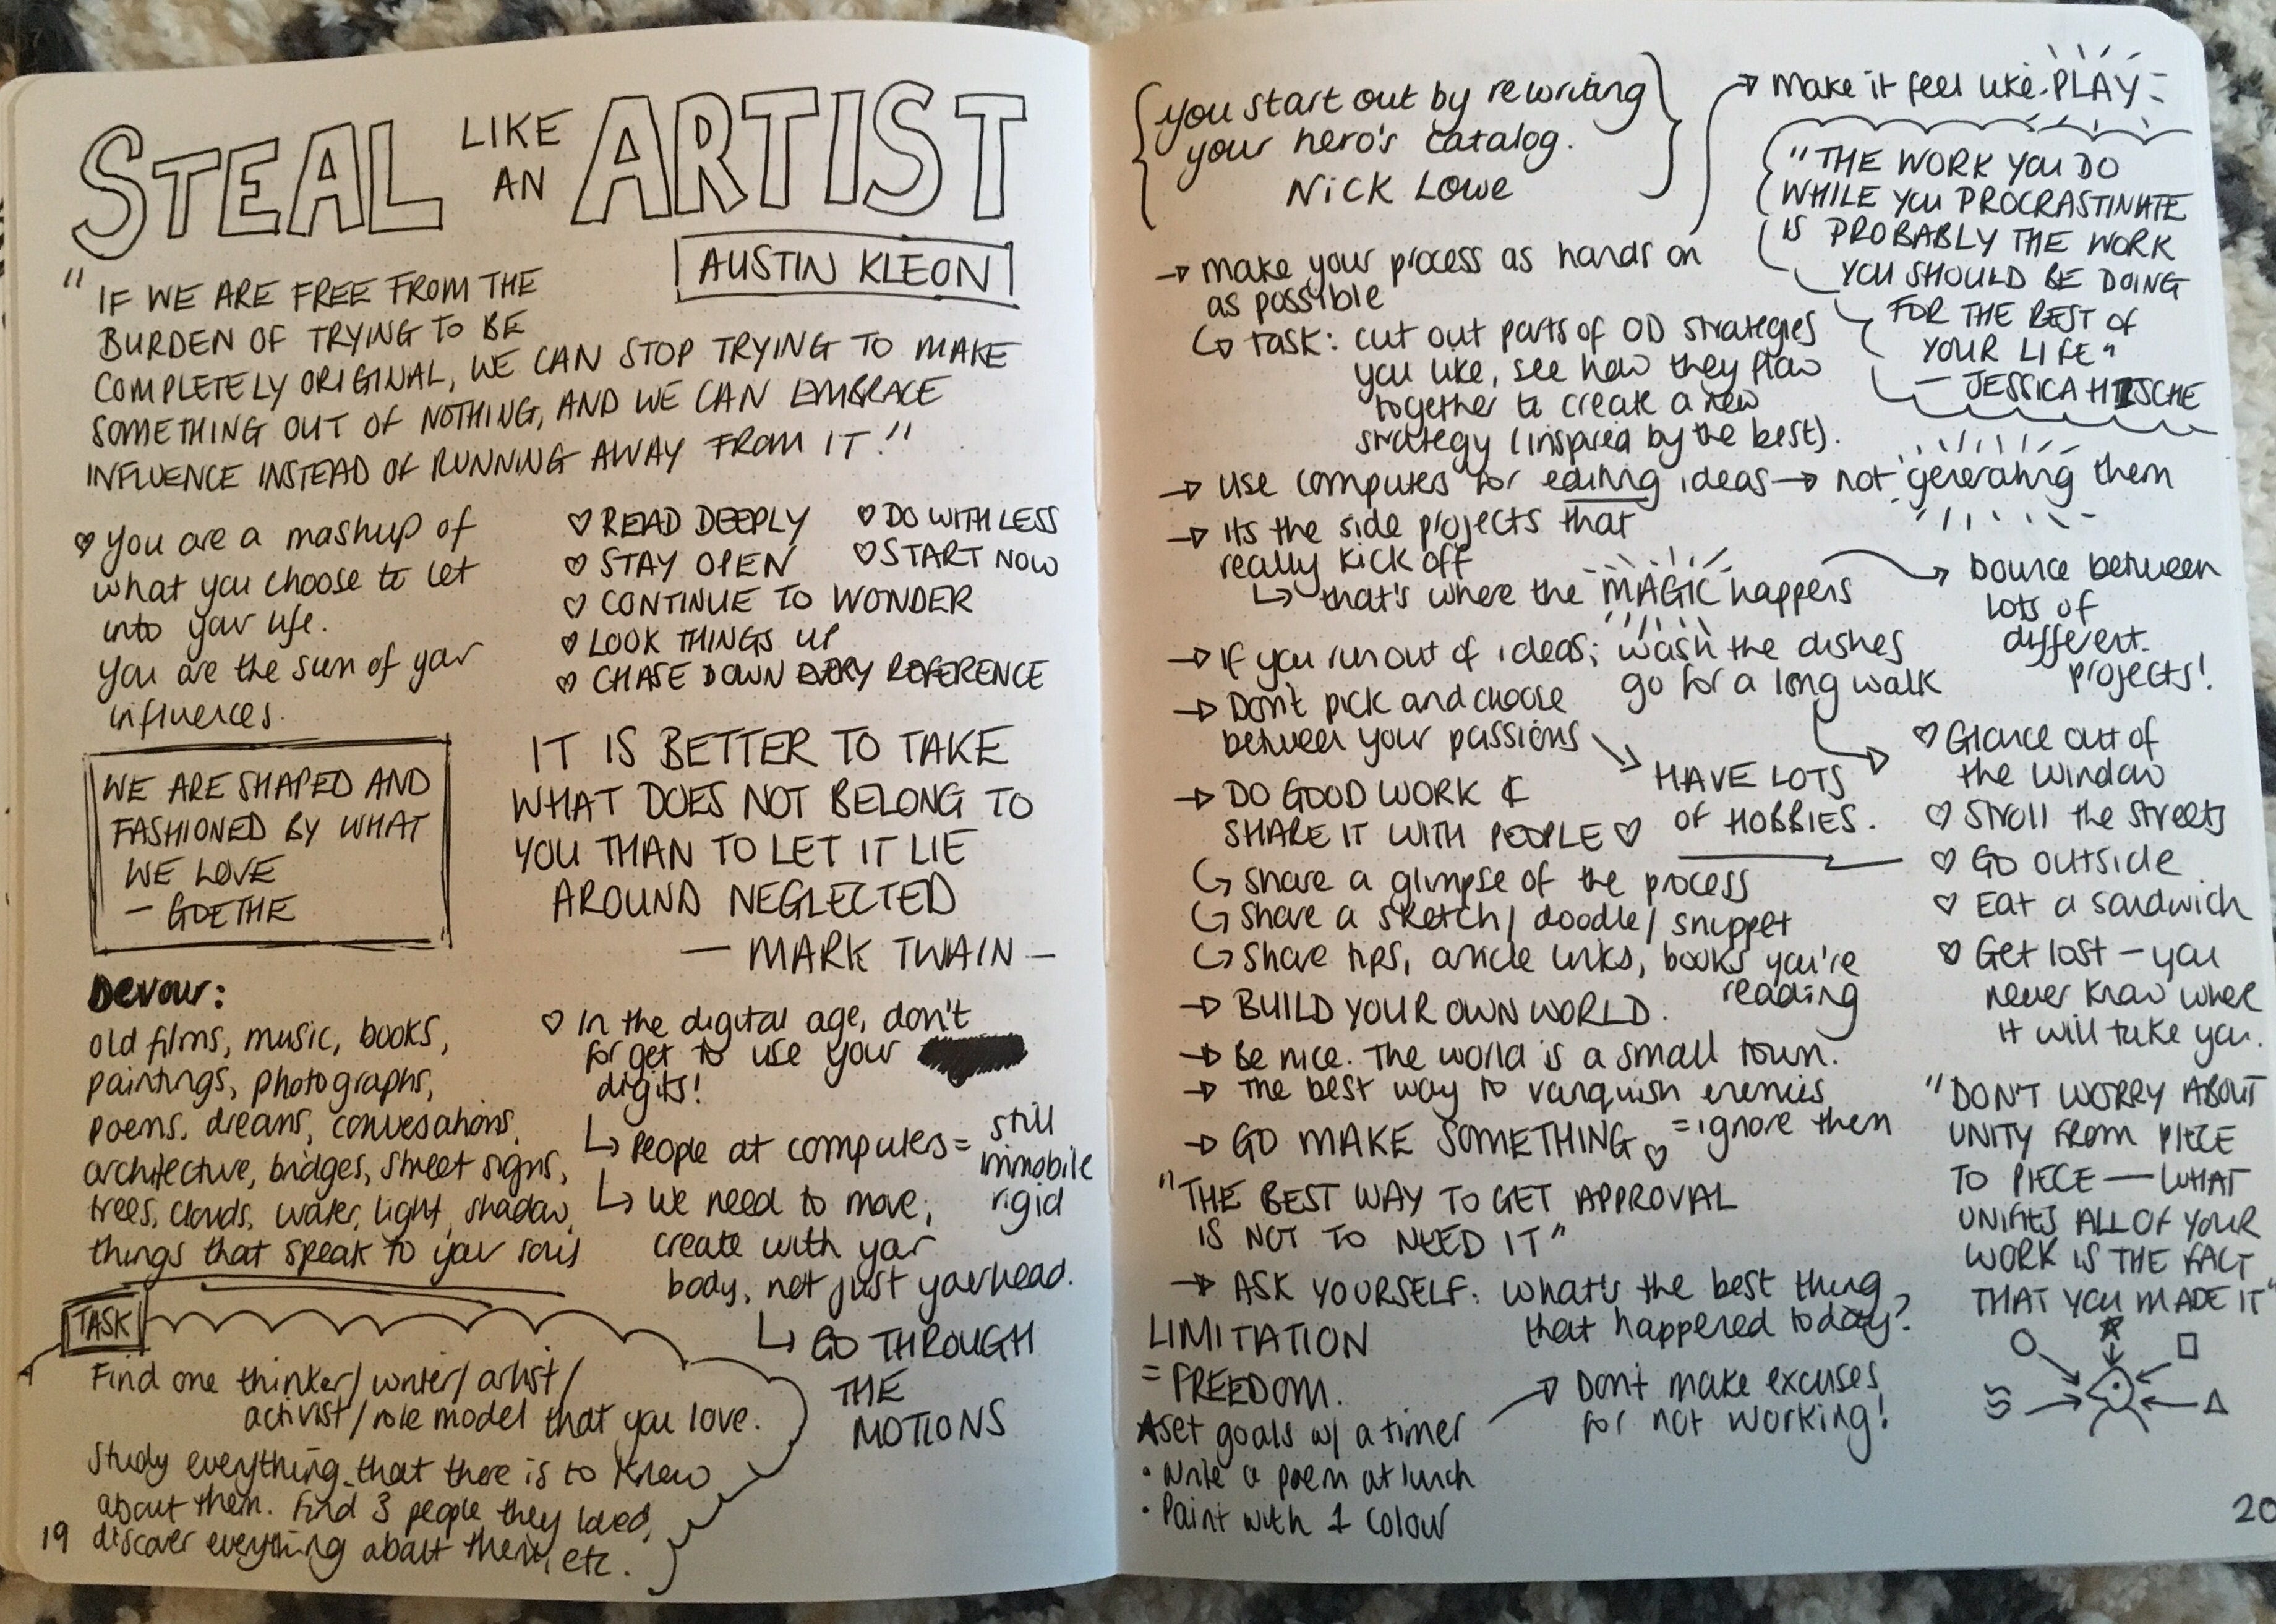 STEAL LIKE AN ARTIST
AUSTIN KLEON
"IF WE ARE FREE FROM THE
BURDEN OF TRYING TO BE
COMPLETELY ORIGINAL, WE CAN STOP TRYING TO MAKE
SOMETHING OUT OF NOTHING, AND WE CAN EMBRACE
INFLUENCE INSTEAD OF RUNNING AWAY FROM IT!"
♡ You are a mashup of
what you choose to let
into your life.
You are the sum of your
influences.
♡ READ DEEPLY
♡ STAY OPEN
♡ CONTINUE TO WONDER
♡ LOOK THINGS UP
♡ CHASE DOWN EVERY REFERENCE
♡ DO WITH LESS
♡ START NOW
WE ARE SHAPED AND
FASHIONED BY WHAT
WE LOVE
- GOETHE
IT IS BETTER TO TAKE
WHAT DOES NOT BELONG TO
YOU THAN TO LET IT LIE
AROUND NEGLECTED
- MARK TWAIN -
Devour:
old films, music, books,
paintings, photographs,
poems, dreams, conversations,
architecture, bridges, street signs,
trees, clouds, water, light, shadow,
things that speak to your soul
♡ In the digital age, don't
forget to use your
digits!
↳ People at computers = still
immobile
rigid
↳ We need to move,
create with your
body, not just your head.
↳ GO THROUGH
THE
MOTIONS
TASK
Find one thinker/writer/artist/
activist/role model that you love.
Study everything that there is to know
about them. Find 3 people they loved,
discover everything about them, etc.
19
{you start out by rewriting
your hero's catalog.}
NICK LOWE
→ make your process as hands on
as possible
→ make it feel like PLAY
↳ task: cut out parts of OD strategies
you like, see how they flow
together to create a new
strategy (inspired by the best).
"THE WORK YOU DO
WHILE YOU PROCRASTINATE
IS PROBABLY THE WORK
YOU SHOULD BE DOING
FOR THE BEST OF
YOUR LIFE"
- JESSICA HISCHE
→ Use computers for editing ideas → not generating them
→ Its the side projects that
really kick off
↳ that's where the MAGIC happens
→ bounce between
lots of
different
projects!
→ If you run out of ideas; wash the dishes
go for a long walk
→ Don't pick and choose
between your passions
→ HAVE LOTS
OF HOBBIES.
♡ Glance out of
the window
♡ Stroll the streets
♡ Go outside
♡ Eat a sandwich
♡ Get lost - you
never know where
it will take you.
→ DO GOOD WORK &
SHARE IT WITH PEOPLE ♡
↳ share a glimpse of the process
↳ share a sketch/doodle/snippet
↳ share tips, article links, books you're
reading
→ BUILD YOUR OWN WORLD.
→ Be nice. The world is a small town.
→ The best way to vanquish enemies
= ignore them
→ GO MAKE SOMETHING ♡
"THE BEST WAY TO GET APPROVAL
IS NOT TO NEED IT"
→ ASK YOURSELF: what's the best thing
that happened today?
"DON'T WORRY ABOUT
UNITY FROM PIECE
TO PIECE — WHAT
UNIFIES ALL OF YOUR
WORK IS THE FACT
THAT YOU MADE IT"
LIMITATION
= FREEDOM.
★ set goals w/ a timer
→ Don't make excuses
for not working!
• Write a poem at lunch
• Paint with 1 colour
20